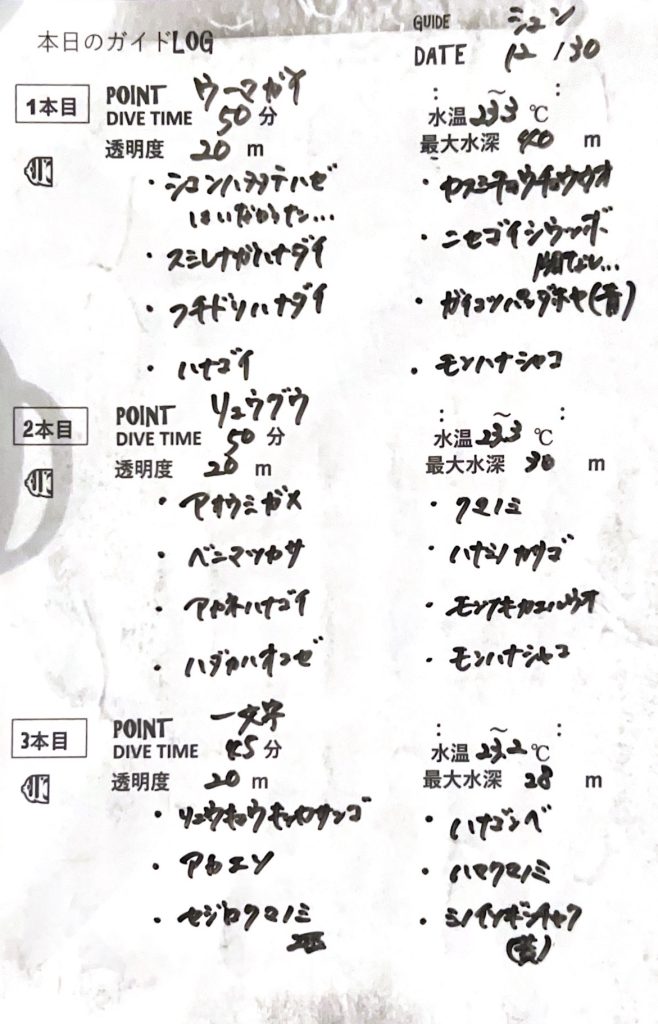 本日のガイドLOG
GUIDE シュン
DATE 12 / 30
1本目
POINT ウーマガイ
: ~ :
DIVE TIME 50 分
水温 23.3 ℃
透明度 20 m
最大水深 40 m
・シコンハタタテハゼ
はいなかった…
・ヤスミチョウチョウウオ
・スミレナガハナダイ
・ニセゴイシウツボ
・フチドリハナダイ
・ガイコツパンダホヤ(青)
・ハナゴイ
・モンハナシャコ
2本目
POINT リュウグウ
: ~ :
DIVE TIME 50 分
水温 23.3 ℃
透明度 20 m
最大水深 30 m
・アオウミガメ
・クマノミ
・ベニマツカサ
・ハナミノカサゴ
・アカネハナゴイ
・モンツキカエルウオ
・ハダカハオコゼ
・モンハナシャコ
3本目
POINT 一文字
: ~ :
DIVE TIME 45 分
水温 23.2 ℃
透明度 20 m
最大水深 28 m
・リュウキュウキッカサンゴ
・ハナゴンベ
・アカエソ
・ハマクマノミ
・セジロクマノミ
・ミノイソギンチャク
(黄)